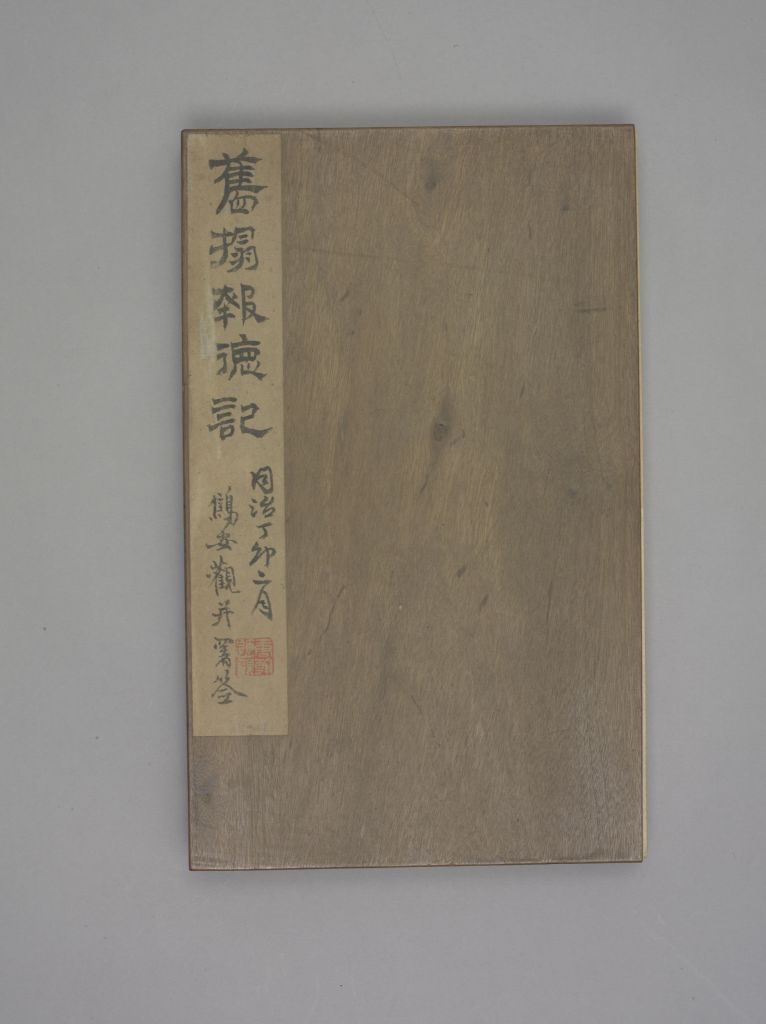 舊搨報德記
同治丁卯二月
鷈安觀并署签